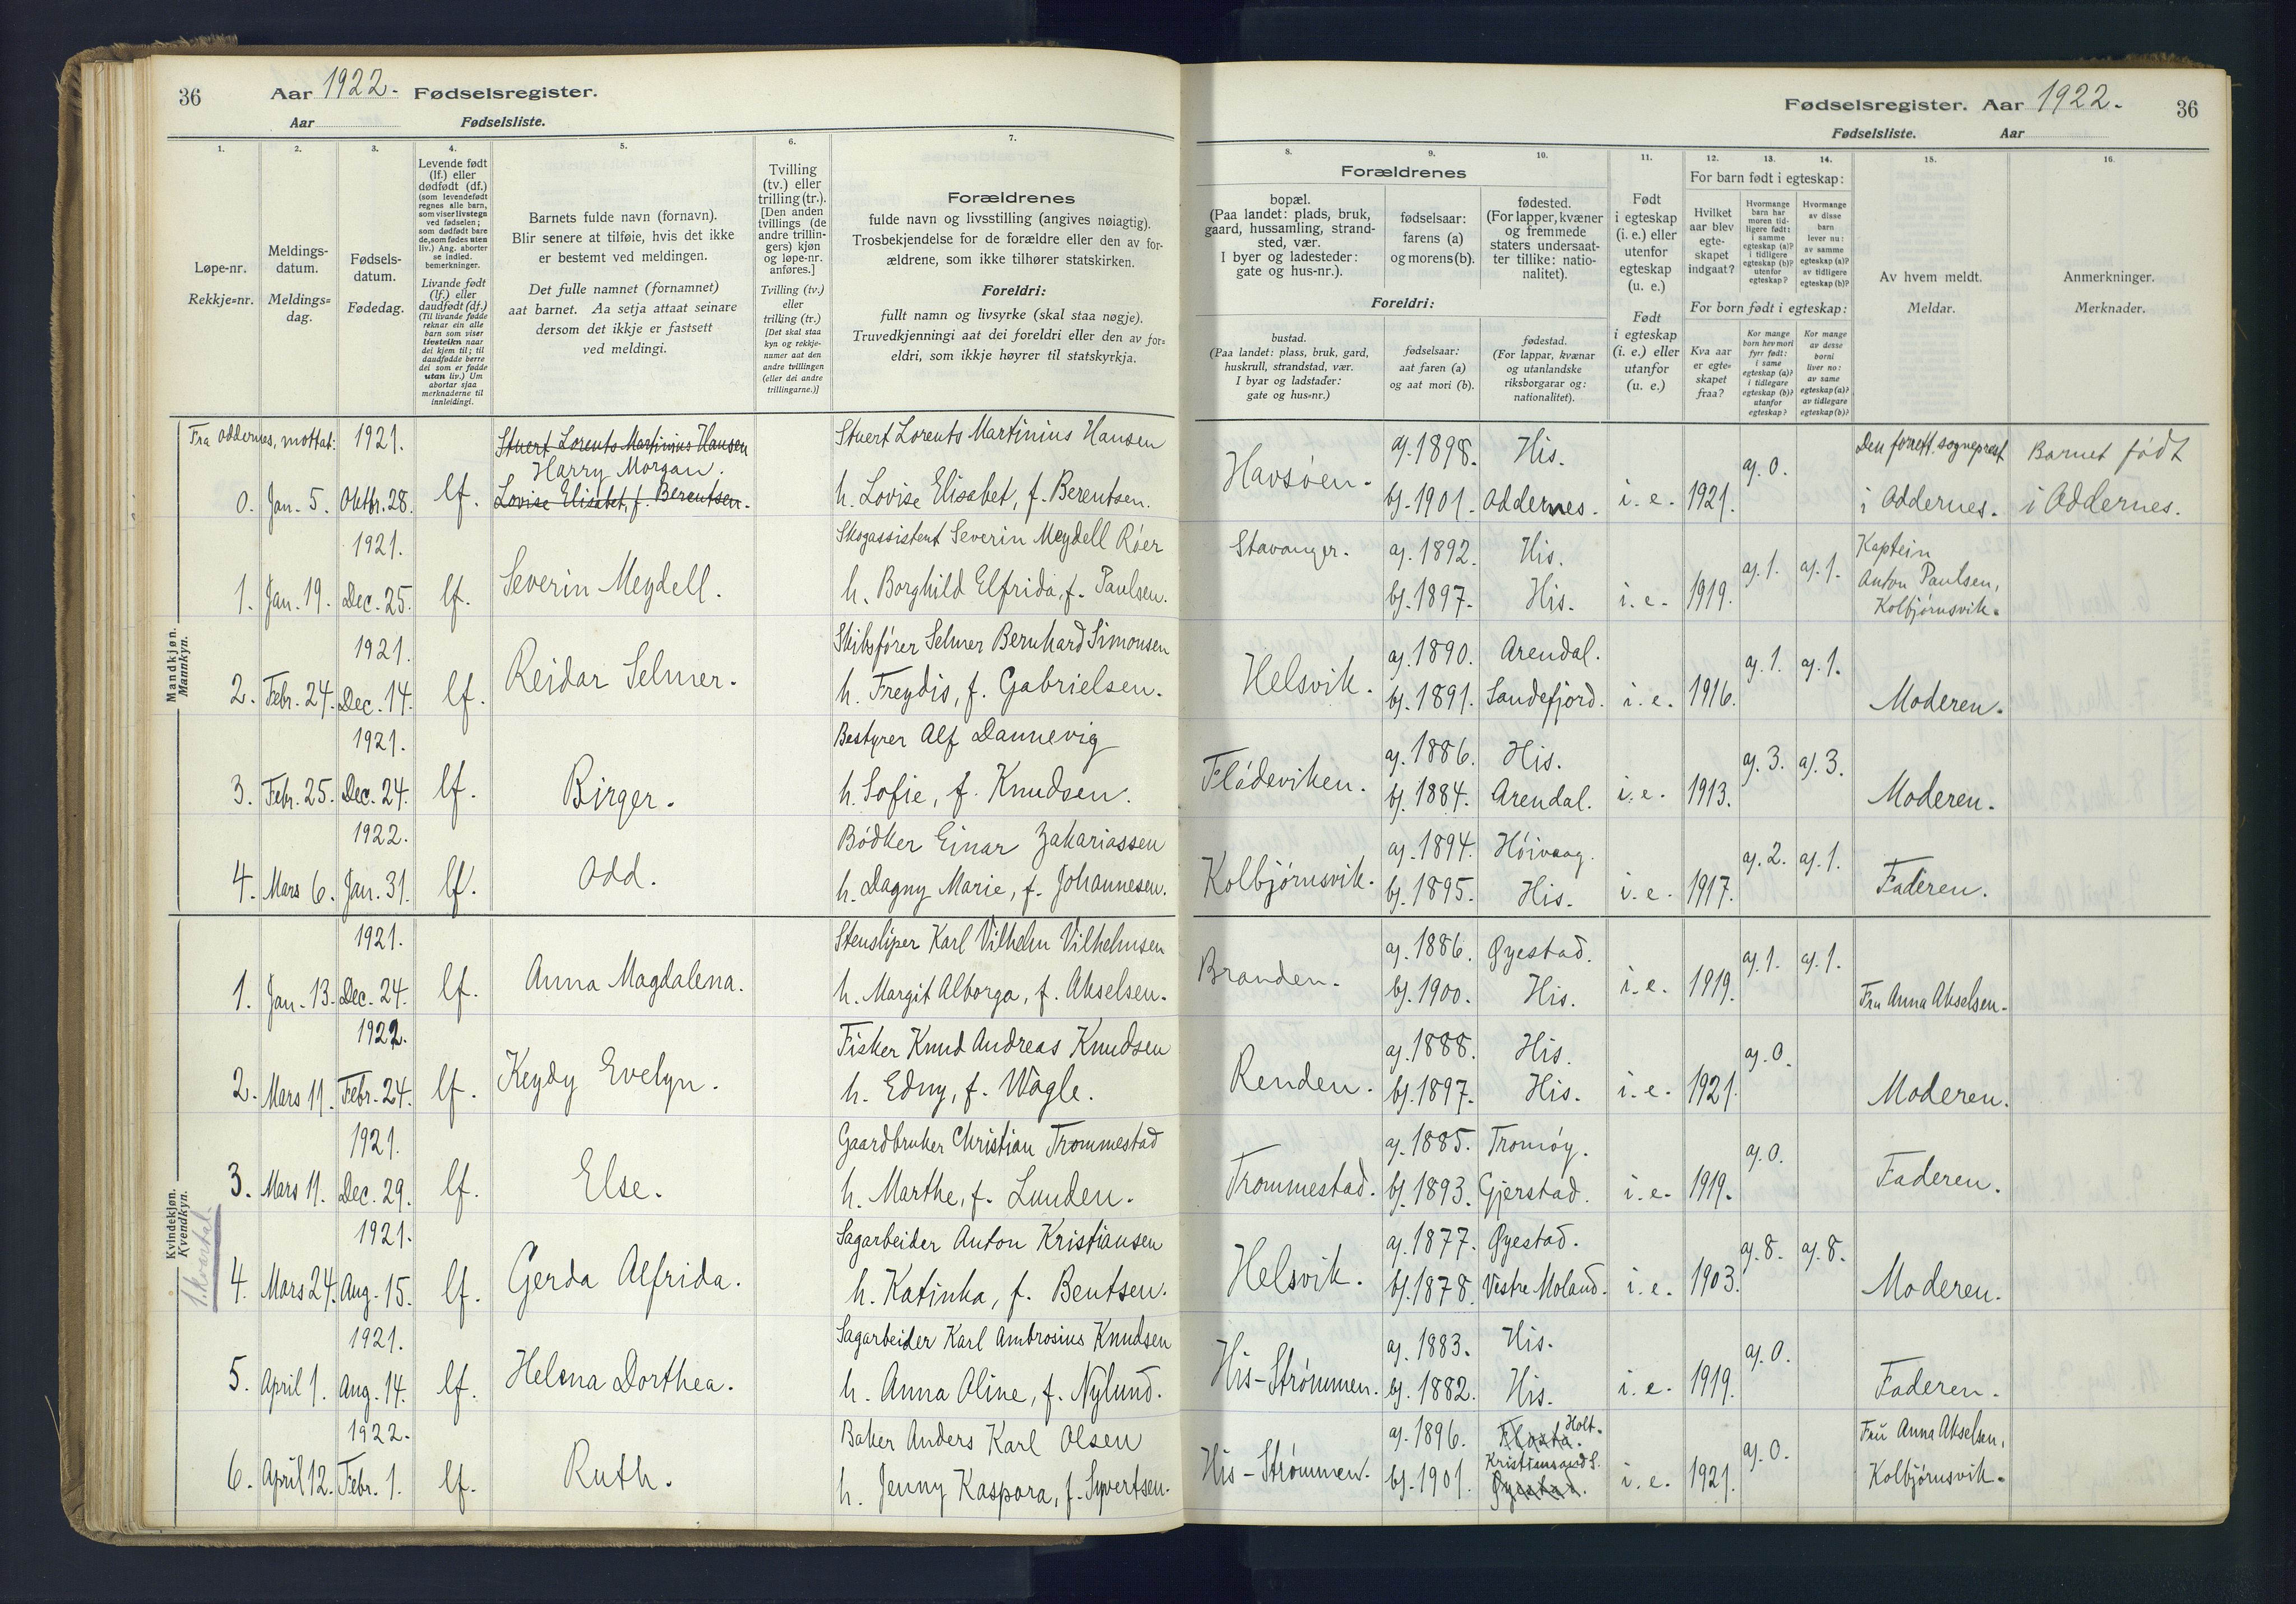 36 Aar 1922. Fødselsregister.
Aar Fødselsliste.
Fødselsregister. Aar 1922. 36
Fødselsliste. Aar
1. 2. 3. 4. 5. 6. 7.
Løpe-nr.
Rekkje-nr.
Meldings-
datum.
Meldings-
dag.
Fødsels-
datum.
Fødedag.
Levende født
(lf.) eller
dødfødt (df.)
(som levendefødt
regnes alle barn,
som viser livstegn
ved fødselen;
som dødfødt bare
de, som fødes uten
liv.) Ang. aborter
se indled.
bemerkninger.
Livande født
(lf.) eller
daudfødt (df.)
(Til livande fødde
reknar ein alle
barn som viser
livsteikn naar
dei kjem til; til
daudfødde berre
dei som er fødde
utan liv.) Um
abortar sjaa
merknaderne til
innleidingi.
Barnets fulde navn (fornavn).
Blir senere at tilføie, hvis det ikke
er bestemt ved meldingen.
Det fulle namnet (fornamnet)
aat barnet. Aa setja attaat seinare
dersom det ikkje er fastsett
ved meldingi.
Tvilling
(tv.) eller
trilling (tr.).
[Den anden
tvillings (de
andre trillin-
gers) kjøn
og løpe-nr.
anføres.]
Tvilling (tv.)
eller
trilling (tr.)
[Det skal staa
kyn og rekkje-
numer aat den
andre tvillingen
(eller dei andre
trillingarne.)]
Forældrenes
fulde navn og livsstilling (angives nøiagtig).
Trosbekjendelse for de forældre eller den av for-
ældrene, som ikke tilhører statskirken.
Foreldri:
fullt namn og livsyrke (skal staa nøgje).
Truvedkjenningi aat dei foreldri eller den av for-
eldri, som ikkje høyrer til statskyrkja.
8. 9. 10. 11. 12. 13. 14. 15. 16.
Forældrenes
bopæl.
(Paa landet: plads, bruk,
gaard, hussamling, strand-
sted, vær.
I byer og ladesteder:
gate og hus-nr.).
fødselsaar:
farens (a)
og morens (b).
fødested.
(For lapper, kvæner
og fremmede
staters undersaat-
ter tillike: natio-
nalitet).
Foreldri:
bustad.
(Paa landet: plass, bruk, gard,
huskrull, strandstad, vær.
I byar og ladstader:
gate og hus-nr.)
fødselsaar:
aat faren (a)
og aat mori (b).
fødestad.
(For lappar, kvænar
og utanlandske
riksborgarar og:
nationalitet).
Født
i egteskap
(i. e.) eller
utenfor
egteskap
(u. e.)
Født
i egteskap
(i. e.) eller
utanfor
(u. e.)
For barn født i egteskap:
Hvilket
aar blev
egte-
skapet
indgaat?
Hvormange
barn har
moren tid-
ligere født:
i samme
egteskap (a)?
i tidligere
egteskap (b)?
utenfor
egteskap?
Hvormange
av disse
barn
lever nu:
av samme
egteskap (a)?
av tidligere
egteskap (b)?
For born født i egteskap:
Kva aar
er egte-
skapet
fraa?
Kor mange
born hev mori
fyrr født:
i same
egteskap (a)?
i tidlegare
egteskap (b)?
utanfor
egteskap?
Kor mange
av desse
borni
liver no:
av same
egteskap (a)?
av tidlegare
egteskap (b)?
Av hvem meldt.
Meldar.
Anmerkninger.
Merknader.
Mandkjøn.
Mannkyn.
Fra Oddernes, mottat: 1921. Stuert Lorents Martinius Hansen Stuert Lorents Martinius Hansen a). 1898. His. a). 0. Den forrett. sogneprest Barnet født
Harry Morgan. Havsøen.
0. Jan. 5. Oktbr. 28. lf. Lovise Elisabet, f. Berentsen. h. Lovise Elisabet, f. Berentsen. b). 1901. Oddernes. i. e. 1921. i Oddernes. i Oddernes.
1921. Skogassistent Severin Meydell Röer Stavanger. a). 1892. His. a). 1. a). 1. Kaptein
Severin Meydell. Anton Paulsen,
1. Jan. 19. Dec. 25. lf. h. Borghild Elfrida, f. Paulsen. b). 1897. His. i. e. 1919. Kolbjörnsvik.
1921. Skibsförer Selmer Bernhard Simonsen a). 1890. Arendal. a). 1. a). 1.
Reidar Selmer. Helsvik.
2. Febr. 24. Dec. 14. lf. h. Freydis, f. Gabrielsen. b). 1891. Sandefjord. i. e. 1916. Moderen.
1921. Bestyrer Alf Dannevig a). 1886. His. a). 3. a). 3.
Flödeviken.
3. Febr. 25. Dec. 24. lf. Birger. h. Sofie, f. Knudsen. b). 1884. Arendal. i. e. 1913. Moderen.
1922. Bödker Einar Zakariassen a). 1894. Höivaag. a). 2. a). 1.
4. Mars 6. Jan. 31. lf. Odd. h. Dagny Marie, f. Johannesen. Kolbjörnsvik. b). 1895. His. i. e. 1917. Faderen.
Kvindekjøn.
Kvendkyn.
1. kvartal.
1921. Stensliper Karl Vilhelm Vilhelmsen a). 1886. Øyestad. a). 1. a). 1.
Anna Magdalena. Branden.
1. Jan. 13. Dec. 24. lf. h. Margit Alborga, f. Akselsen. b). 1900. His. i. e. 1919. Fru Anna Akselsen.
1922. Fisker Knud Andreas Knudsen a). 1888. His. a). 0.
Keydy Evelyn. Renden.
2. Mars 11. Febr. 24. lf. h. Edny, f. Wågle. b). 1897. His. i. e. 1921. Moderen.
1921. Gaardbruker Christian Trommestad a). 1885. Tromöy. a). 0.
3. Mars 11. Dec. 29. lf. Else. h. Marthe, f. Lunden. Trommestad. b). 1893. Gjerstad. i. e. 1919. Faderen.
1921. Sagarbeider Anton Kristiansen a). 1877. Øyestad. a). 8. a). 8.
4. Mars 24. Aug. 15. lf. Gerda Alfrida. h. Katinka, f. Bentsen. Helsvik. b). 1878. Vestre Moland. i. e. 1903. Moderen.
1921. Sagarbeider Karl Ambrosius Knudsen a). 1883. His. a). 0.
5. April 1. Aug. 14. lf. Helena Dorthea. h. Anna Oline, f. Nylund. His-Strömmen. b). 1882. His. i. e. 1919. Faderen.
1922. Baker Anders Karl Olsen a). 1896. Flosta. Holt. a). 0. Frü Anna Akselsen,
Kristiansand S.
6. April 12. Febr. 1. lf. Ruth. h. Jenny Kaspara, f. Syvertsen. His-Strömmen. b). 1901. Øyestad. i. e. 1921. Kolbjörnsvik.